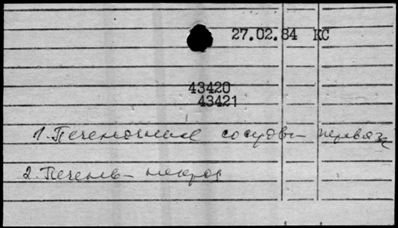 27.02.84 КС
43420
43421
1. Печеночные сосуды - перевяз
2. Печень - некроз